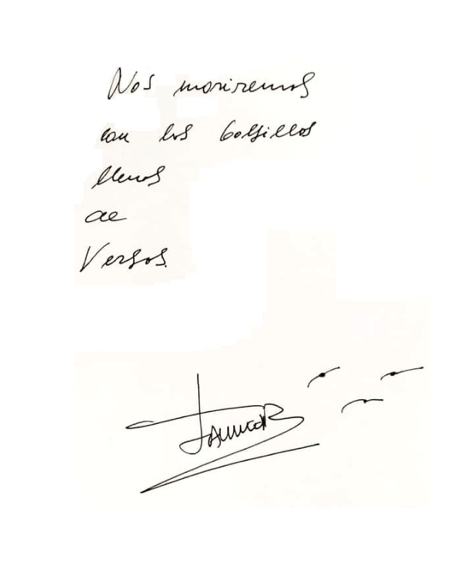 Nos moriremos
con los bolsillos
llenos
de
Versos.